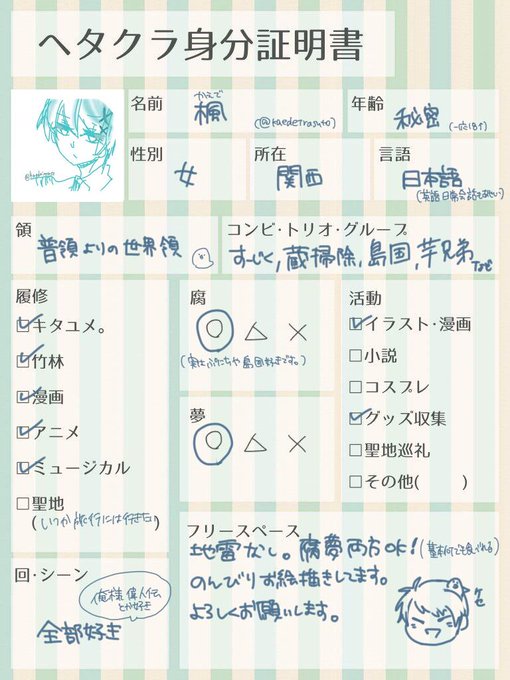 ヘタクラ身分証明書
名前
かえで
楓
(@kaedetrasuto)
年齢
秘密
性別
女
所在
関西
言語
日本語
領
普領よりの世界領
コンビ・トリオ・グループ
すーじく,蔵掃除,島国,芋兄弟など
履修
☑キタユメ。
☑竹林
☑漫画
☑アニメ
☑ミュージカル
□聖地
(いつか旅行には行きたい)
腐
○ △ ×
夢
○ △ ×
活動
☑イラスト・漫画
□小説
□コスプレ
☑グッズ収集
□聖地巡礼
□その他( )
回・シーン
俺様偉人伝
とか好き
全部好き
フリースペース
地雷なし。腐夢両方OK!(基本何でも食べれる)
のんびりお絵描きしてます。
よろしくお願いします。